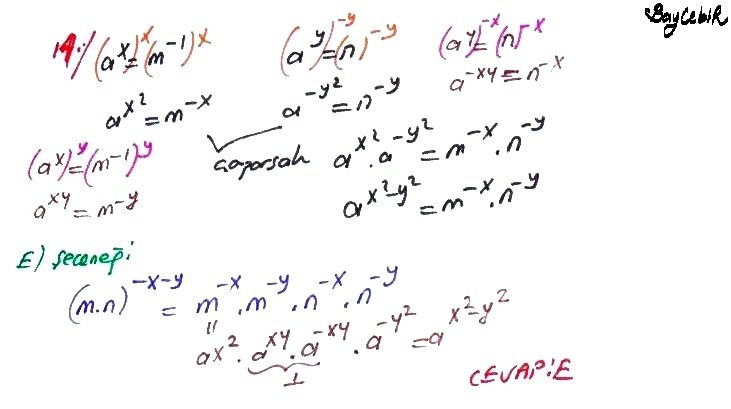 BayCebiR
19·/ (a^x)^x = (m^-1)^x
a^x² = m^-x
(a^y)^-y = (n)^-y
a^-y² = n^-y
(a^y)^-x = (n)^-x
a^-xy = n^-x
(a^x)^y = (m^-1)^y
a^xy = m^-y
çaparsak a^x² . a^-y² = m^-x . n^-y
a^x²-y² = m^-x . n^-y
E) seceneği
(m.n)^-x-y = m^-x . m^-y . n^-x . n^-y
=
ax² . a^xy . a^-xy . a^-y² = a^x²-y²
1
CEVAP:E